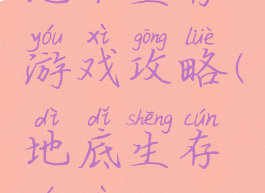 yóu xì gōng lüè
游戏攻略(
dì dǐ shēng cún
地底生存